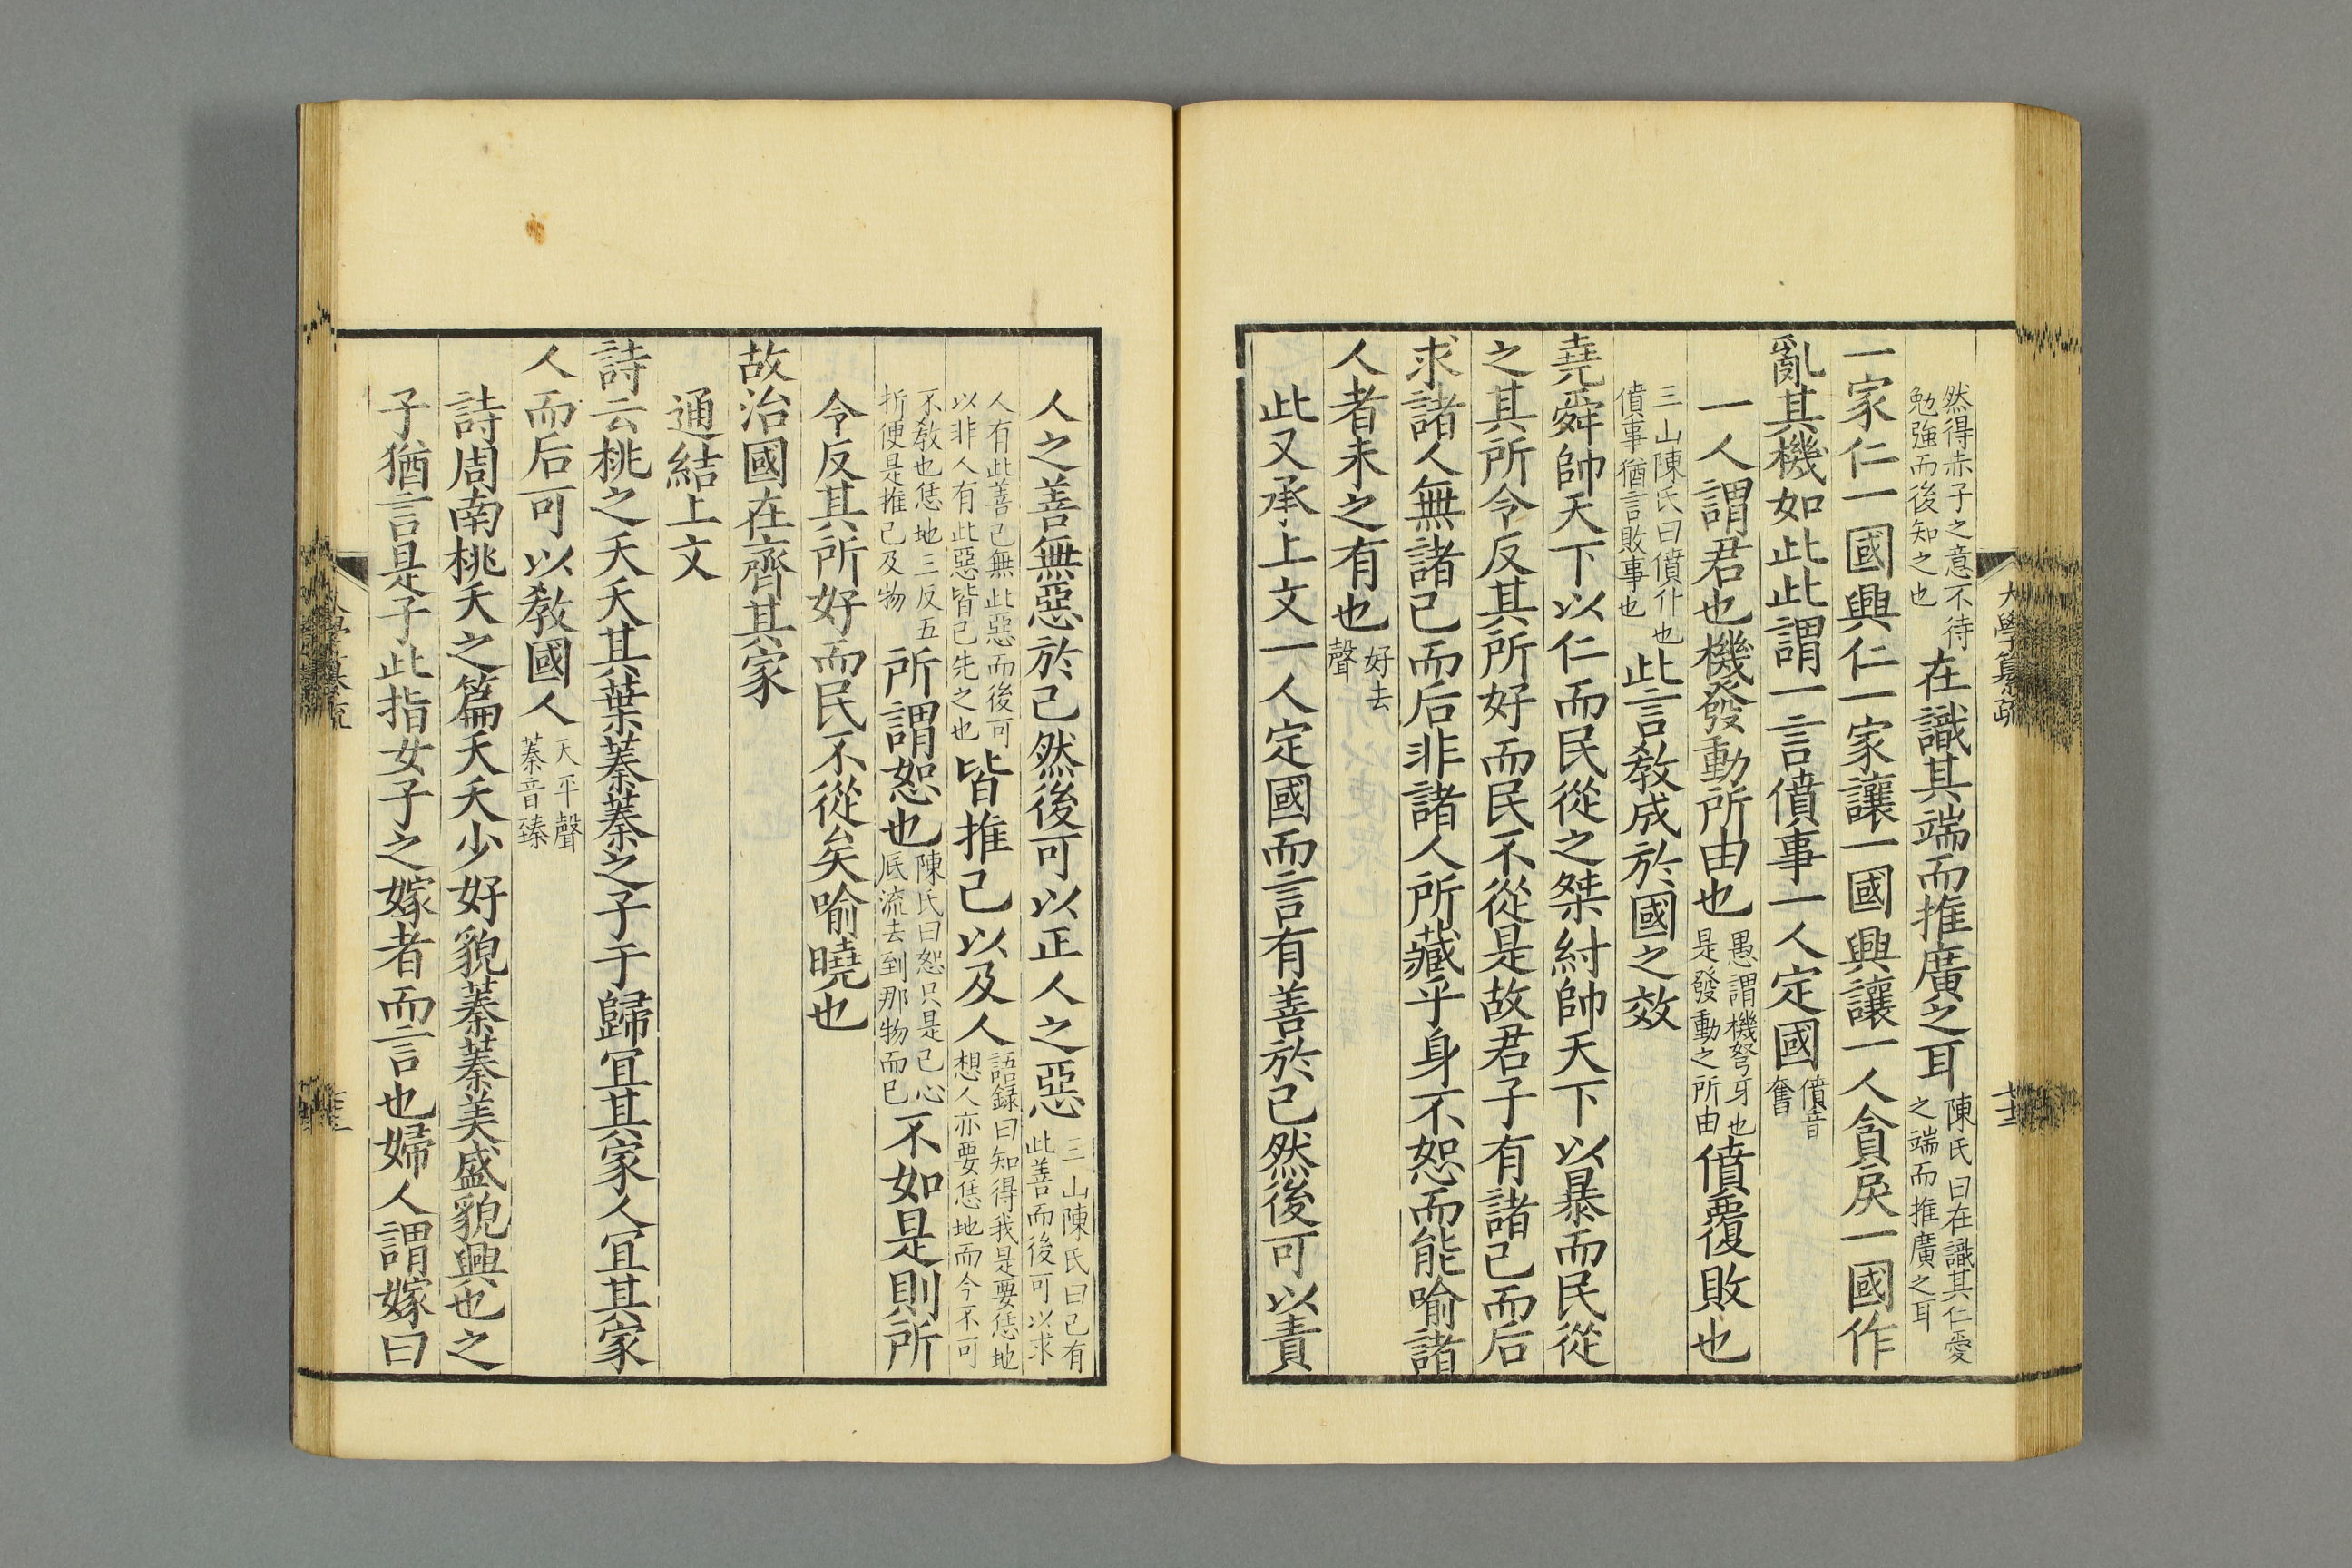 然得赤子之意不待勉強而後知之也在識其端而推廣之耳陳氏曰在識其仁愛之端而推廣之耳
一家仁一國興仁一家讓一國興讓一人貪戾一國作
亂其機如此此謂一言僨事一人定國僨音奮
一人謂君也機發動所由也愚謂機弩牙也是發動之所由僨覆敗也
三山陳氏曰僨仆也僨事猶言敗事也此言敎成於國之效
堯舜帥天下以仁而民從之桀紂帥天下以暴而民從
之其所令反其所好而民不從是故君子有諸己而后
求諸人無諸己而后非諸人所藏乎身不恕而能喻諸
人者未之有也好去聲
此又承上文一人定國而言有善於己然後可以責
大學纂疏
人之善無惡於己然後可以正人之惡三山陳氏曰己有此善而後可以求
人有此善己無此惡而後可以非人有此惡皆己先之也皆推己以及人語錄曰知得我是要恁地想人亦要恁地而今不可
不敎他恁地三反五折便是推己及物所謂恕也陳氏曰恕只是己心底流去到那物而已不如是則所
令反其所好而民不從矣喻曉也
故治國在齊其家
通結上文
詩云桃之夭夭其葉蓁蓁之子于歸冝其家人冝其家
人而后可以敎國人夭平聲蓁音臻
詩周南桃夭之篇夭夭少好貌蓁蓁美盛貌興也之
子猶言是子此指女子之嫁者而言也婦人謂嫁曰